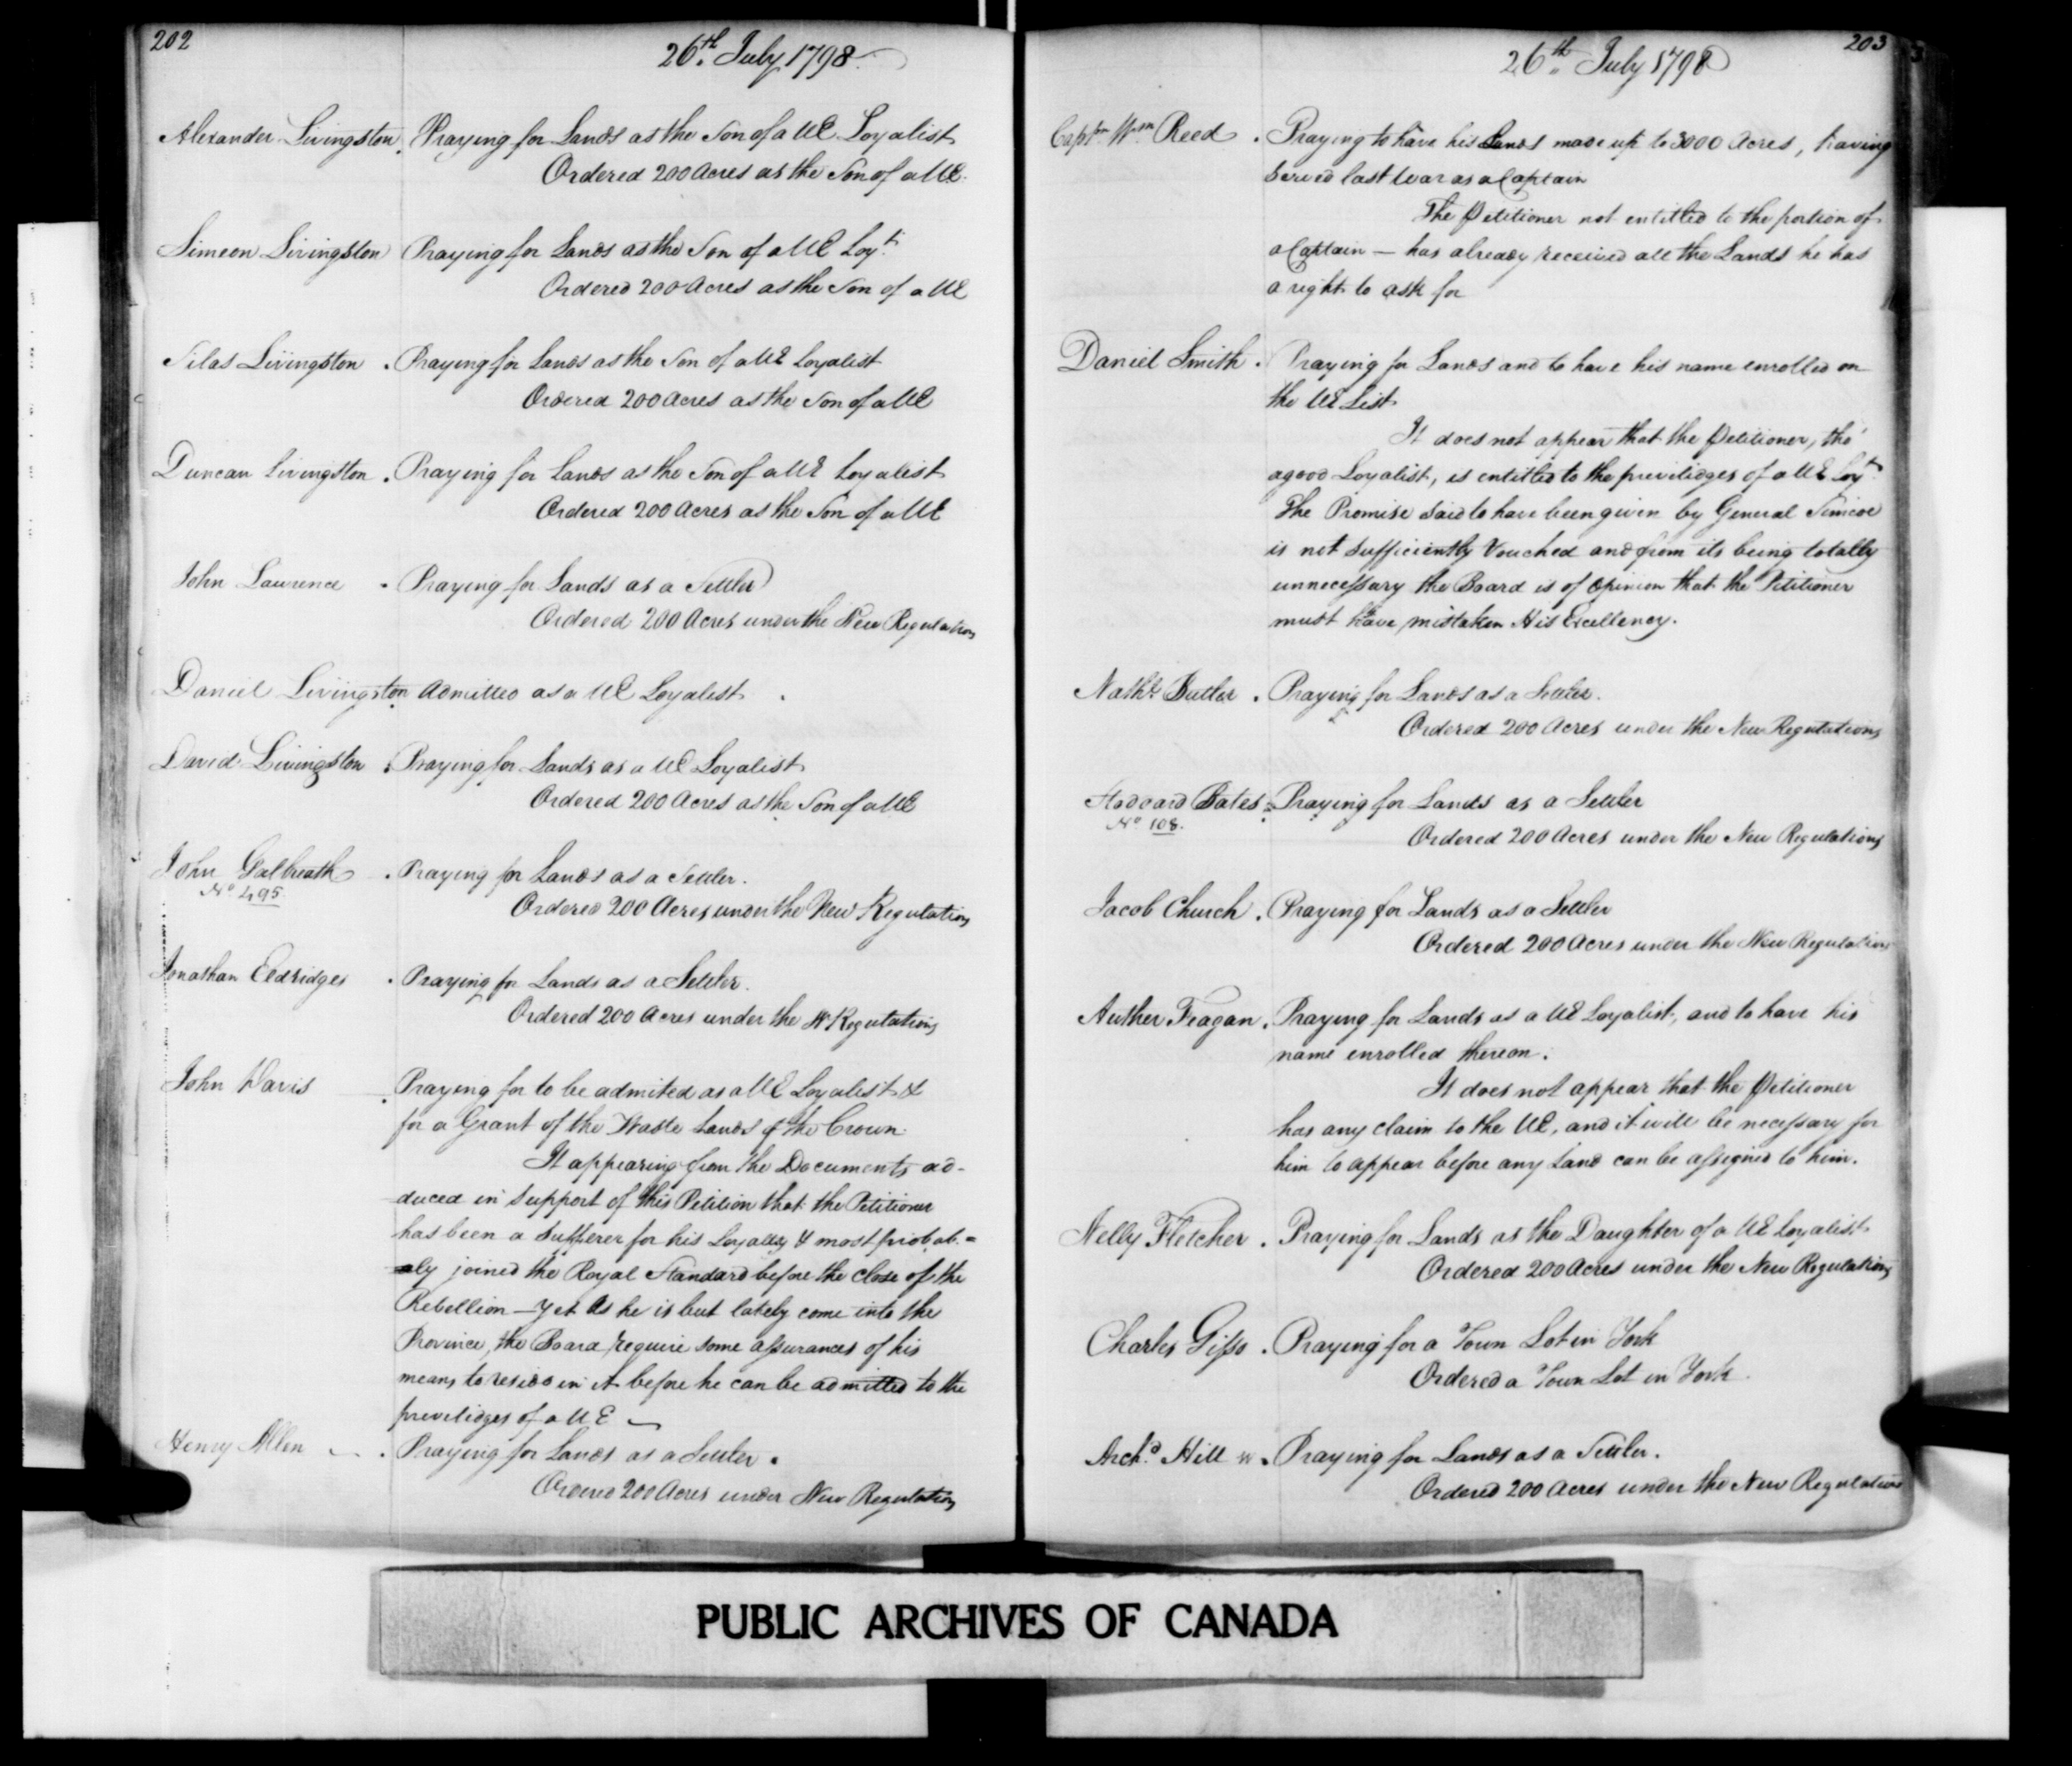 202
26th July 1798
Alexander Livingston. Praying for Lands as the Son of a UE Loyalist
Ordered 200 Acres as the Son of a UE.
Simeon Livingston Praying for Lands as the Son of a UE Loyt.
Ordered 200 Acres as the Son of a UE
Silas Livingston . Praying for Lands as the Son of a UE Loyalist
Ordered 200 Acres as the Son of a UE
Duncan Livingston . Praying for Lands as the Son of a UE Loyalist
Ordered 200 Acres as the Son of a UE
John Laurence . Praying for Lands as a Settler
Ordered 200 Acres under the New Regulations
Daniel Livingston Admitted as a UE Loyalist .
David Livingston . Praying for Lands as a UE Loyalist
Ordered 200 Acres as the Son of a UE
John Galbreath . Praying for Lands as a Settler.
No. 495.
Ordered 200 Acres under the New Regulations
Jonathan Eldridges . Praying for Lands as a Settler.
Ordered 200 Acres under the N Regulations
John Davis . Praying for to be admited as a UE Loyalist &
for a Grant of the Waste Lands of the Crown.
It appearing from the Documents ad-
duced in support of this Petition that the Petitioner
has been a Sufferer for his Loyalty & most probab=
ly joined the Royal Standard before the close of the
Rebellion — yet As he is but lately come into the
Province, the Board require some assurances of his
means to reside in it before he can be admitted to the
previlidges of a UE —
Henry Allen — . Praying for Lands as a Settler .
Ordered 200 Acres under New Regulations
203
26th July 1798
Captn. Wm. Reed . Praying to have his Lands made up to 3000 Acres, having
served last War as a Captain
The Petitioner not entitled to the portion of
a Captain — has already received all the Lands he has
a right to ask for
Daniel Smith . Praying for Lands and to have his name enrolled on
the UE List
It does not appear that the Petitioner, tho'
a good Loyalist, is entitled to the previlidges of a UE Loyt.
The Promise said to have been given by General Simcoe
is not sufficiently Vouched and from its being totally
unnecessary the Board is of opinion that the Petitioner
must have mistaken His Excellency.
Nathl. Butler . Praying for Lands as a Settler.
Ordered 200 Acres under the New Regulations
Stodoard Bates . Praying for Lands as a Settler
No. 108.
Ordered 200 Acres under the New Regulations
Jacob Church . Praying for Lands as a Settler
Ordered 200 Acres under the New Regulations
Auther Feagan . Praying for Lands as a UE Loyalist, and to have his
name enrolled thereon.
It does not appear that the Petitioner
has any claim to the UE, and it will be necessary for
him to appear before any Land can be assigned to him.
Nelly Fletcher . Praying for Lands as the Daughter of a UE Loyalist
Ordered 200 Acres under the New Regulations
Charles Gisso . Praying for a Town Lot in York
Ordered a Town Lot in York.
Archd. Hill . Praying for Lands as a Settler.
Ordered 200 Acres under the New Regulations
PUBLIC ARCHIVES OF CANADA